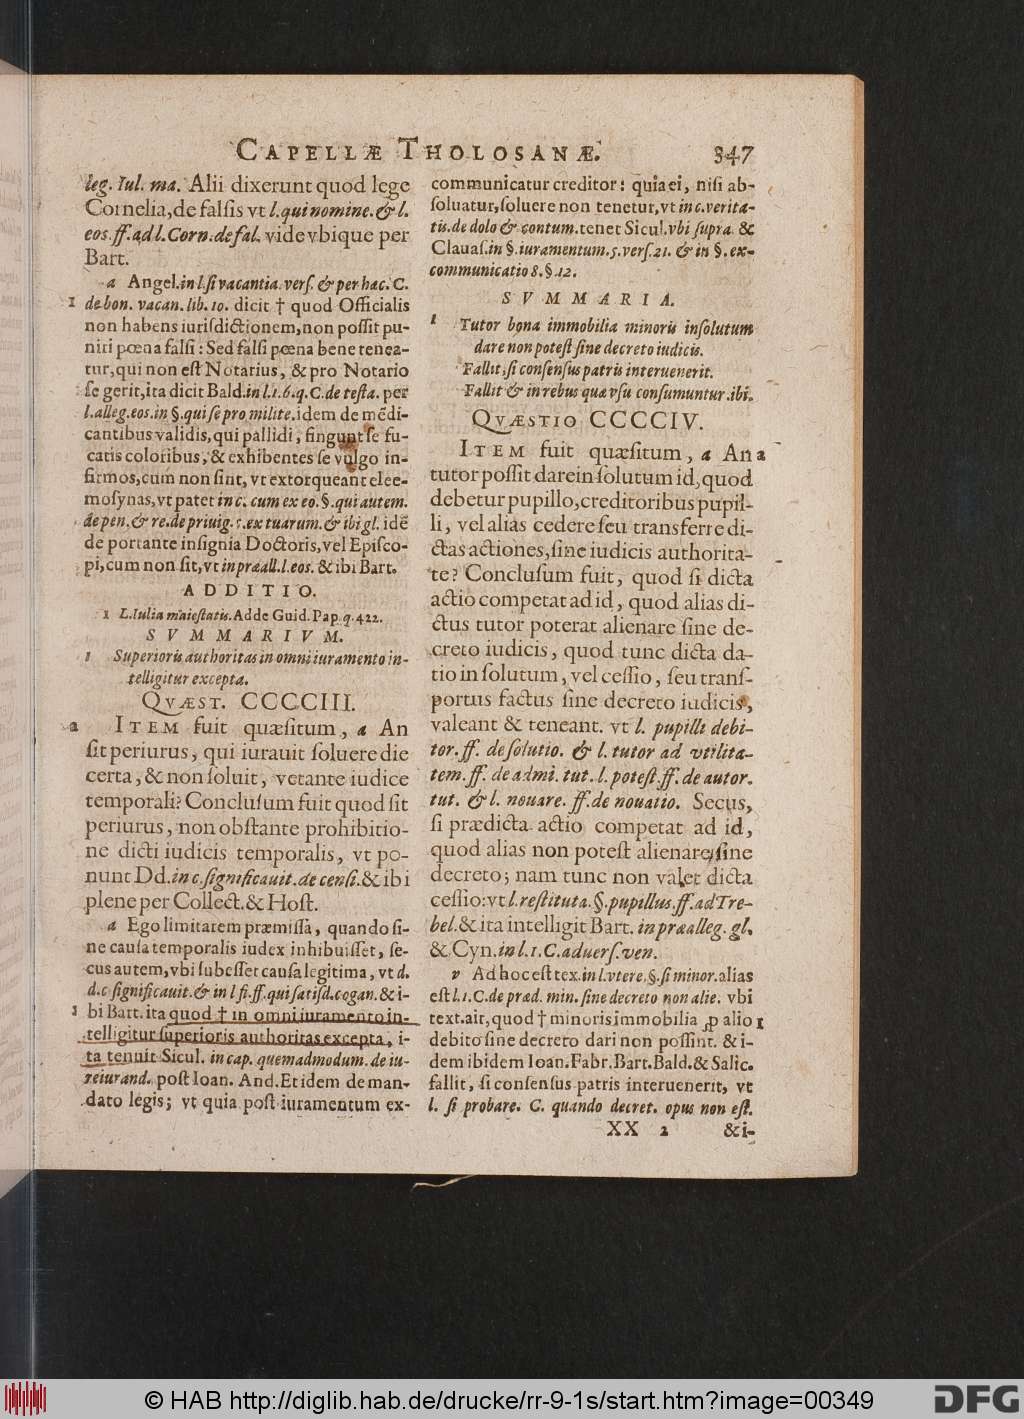 CAPELLÆ THOLOSANÆ. 347
leg. Iul. ma. Alii dixerunt quod lege
Cornelia, de falſis vt l. qui nomine. & l.
eos. ff. ad l. Corn. de fal. vide vbique per
Bart.
a Angel. in l. ſi vacantia. verſ. & per hac. C.
1 de bon. vacan. lib. 10. dicit † quod Officialis
non habens iuriſdictionem, non poſſit pu-
niri pœna falſi: Sed falſi pœna bene tenea-
tur, qui non eſt Notarius, & pro Notario
ſe gerit, ita dicit Bald. in l. 1. 6. q. C. de teſta. per
l. alleg. eos. in §. qui ſe pro milite. idem de mēdi-
cantibus validis, qui pallidi, fingunt ſe fu-
catis coloribus, & exhibentes ſe vulgo in-
firmos, cùm non ſint, vt extorqueant elee-
moſynas, vt patet in c. cum ex eo. §. qui autem.
de pen. & re. de priuig. c. ex tuarum. & ibi gl. idē
de portante inſignia Doctoris, vel Epiſco-
pi, cum non ſit, vt in præall. l. eos. & ibi Bart.
ADDITIO.
1 L. Iulia maieſtatis. Adde Guid. Pap. q. 422.
SVMMARIVM.
1 Superioris authoritas in omni iuramento in-
telligitur excepta.
QVÆST. CCCCIII.
a ITEM fuit quæſitum, a An
ſit periurus, qui iurauit ſoluere die
certa, & non ſoluit, vetante iudice
temporali? Concluſum fuit quod ſit
periurus, non obſtante prohibitio-
ne dicti iudicis temporalis, vt po-
nunt Dd. in c. ſignificauit. de cenſi. & ibi
plene per Collect. & Hoſt.
a Ego limitarem præmiſſa, quando ſi-
ne cauſa temporalis iudex inhibuiſſet, ſe-
cus autem, vbi ſubeſſet cauſa legitima, vt d.
d. c ſignificauit. & in l fi. ff. qui ſatiſd. cogan. & i-
1 bi Bart. ita quod † in omni iuramento in-
telligitur ſuperioris authoritas excepta, i-
ta tenuit Sicul. in cap. quemadmodum. de iu-
reiurand. poſt Ioan. And. Et idem de man-
dato legis; vt quia poſt iuramentum ex-
communicatur creditor: quia ei, niſi ab-
ſoluatur, ſoluere non tenetur, vt in c. verita-
tis. de dolo & contum. tenet Sicul. vbi ſupra. &
Clauaſ. in §. iuramentum. 5. verſ. 21. & in §. ex-
communicatio 8. §. 12.
SVMMARIA.
1 Tutor bona immobilia minoris inſolutum
dare non poteſt ſine decreto iudicis.
Fallit, ſi conſenſus patris interuenerit.
Fallit & in rebus quæ vſu conſumuntur. ibi.
QVÆSTIO CCCCIV.
ITEM fuit quæſitum, a An a
tutor poſſit dare in ſolutum id, quod
debetur pupillo, creditoribus pupil-
li, vel alias cedere ſeu transferre di-
ctas actiones, ſine iudicis authorita-
te? Concluſum fuit, quod ſi dicta
actio competat ad id, quod alias di-
ctus tutor poterat alienare ſine de-
creto iudicis, quod tunc dicta da-
tio in ſolutum, vel ceſſio, ſeu tranſ-
portus factus ſine decreto iudicis,
valeant & teneant. vt l. pupilli debi-
tor. ff. de ſolutio. & l. tutor ad vtilita-
tem. ff. de admi. tut. l. poteſt. ff. de autor.
tut. & l. nouare. ff. de nouatio. Secus,
ſi prædicta actio competat ad id,
quod alias non poteſt alienare ſine
decreto; nam tunc non valet dicta
ceſſio: vt l. reſtituta. §. pupillus. ff. ad Tre-
bel. & ita intelligit Bart. in præalleg. gl.
& Cyn. in l. 1. C. aduerſ. ven.
a Ad hoc eſt tex. in l. vtere. §. ſi minor. alias
eſt l. 1. C. de præd. min. ſine decreto non alie. vbi
text. ait, quod † minoris immobilia ꝓ alio 1
debito ſine decreto dari non poſſint. & i-
dem ibidem Ioan. Fabr. Bart. Bald. & Salic.
fallit, ſi conſenſus patris interuenerit, vt
l. ſi probare. C. quando decret. opus non eſt.
XX 2 & i-
© HAB http://diglib.hab.de/drucke/rr-9-1s/start.htm?image=00349
DFG